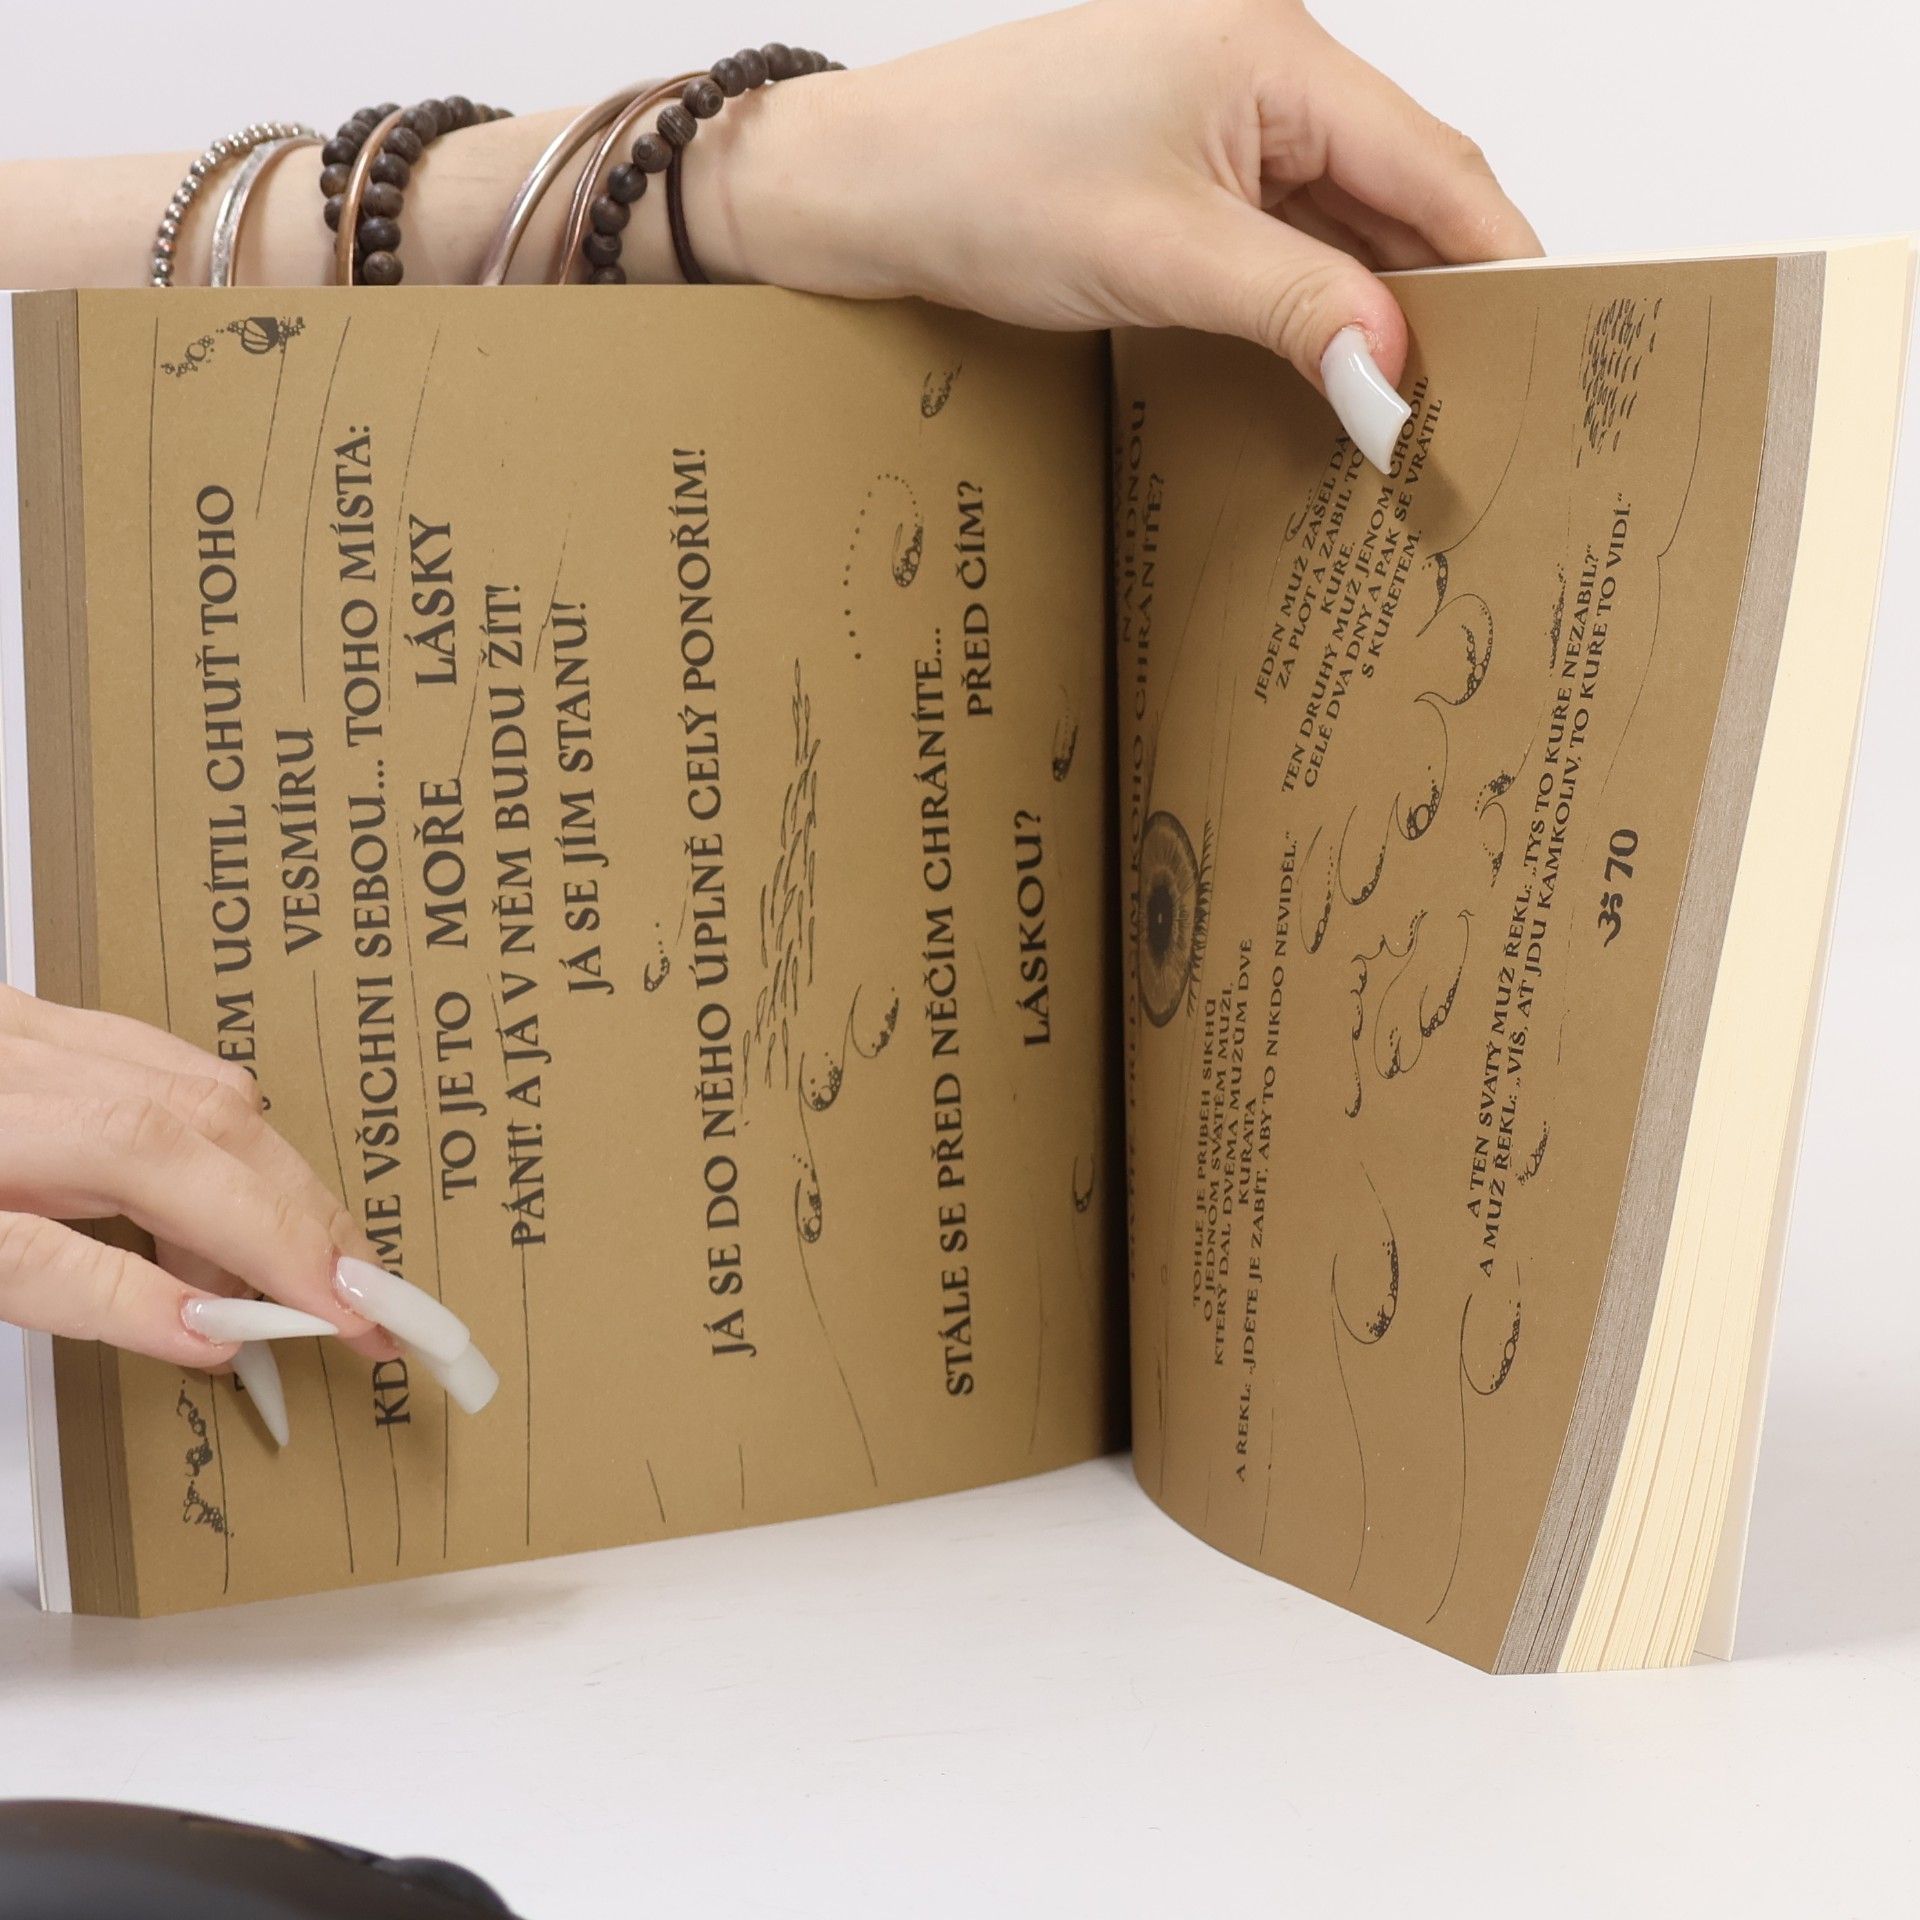 JSEM UCÍTIL CHUŤ TOHO
VESMÍRU
JSME VŠICHNI SEBOU... TOHO MÍSTA:
TO JE TO MOŘE LÁSKY
PÁNI! A JÁ V NĚM BUDU ŽÍT!
JÁ SE JÍM STANU!
JÁ SE DO NĚHO ÚPLNĚ CELÝ PONOŘÍM!
STÁLE SE PŘED NĚČÍM CHRÁNÍTE...
PŘED ČÍM?
LÁSKOU?
NAJEDNOU
KOHO CHRÁNÍTE?
TOHLE JE PŘÍBĚH SIKHŮ
O JEDNOM SVATÉM MUŽI,
KTERÝ DAL DVĚMA MUŽŮM DVĚ
KUŘATA
A ŘEKL: „JDĚTE JE ZABÍT, ABY TO NIKDO NEVIDĚL.“
JEDEN MUŽ ZAŠEL
ZA PLOT A ZABIL TO
KUŘE.
TEN DRUHÝ MUŽ JENOM CHODIL
CELÉ DVA DNY A PAK SE VRÁTIL
S KUŘETEM.
A TEN SVATÝ MUŽ ŘEKL: „TYS TO KUŘE NEZABIL?“
A MUŽ ŘEKL: „VÍŠ, AŤ JDU KAMKOLIV, TO KUŘE TO VIDÍ.“
ॐ 70